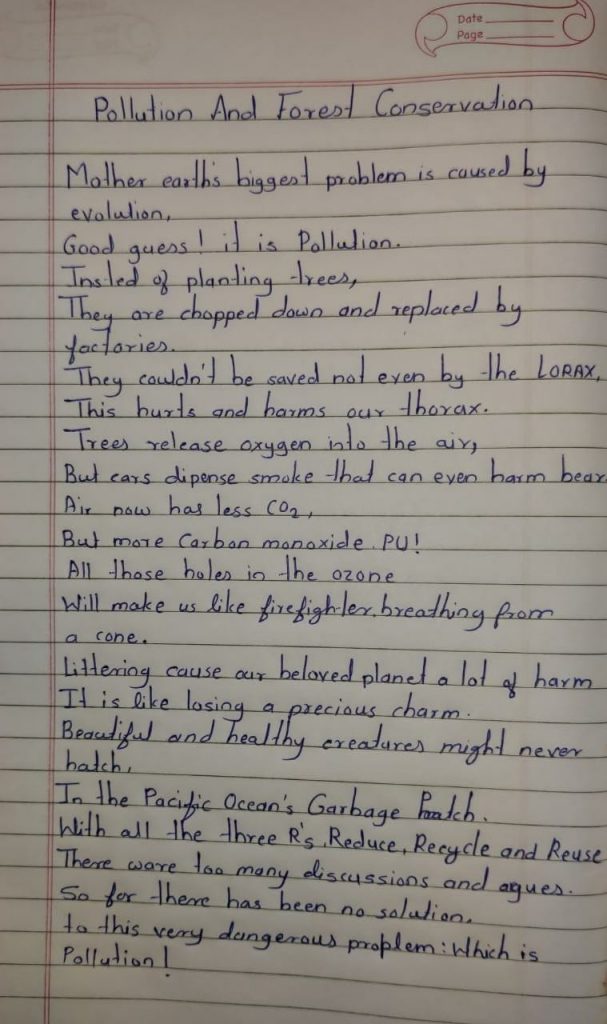 Date
Page
Pollution And Forest Conservation
Mother earth's biggest problem is caused by
evolution,
Good guess! it is Pollution.
Insted of planting trees,
They are chopped down and replaced by
factories.
They couldn't be saved not even by the LORAX,
This hurts and harms our thorax.
Trees release oxygen into the air,
But cars dipense smoke that can even harm bear
Air now has less CO2,
But more Carbon monoxide. PU!
All those holes in the ozone
Will make us like firefighter, breathing from
a cone.
Littering cause our beloved planet a lot of harm
It is like losing a precious charm.
Beautiful and healthy creatures might never
hatch,
In the Pacific Ocean's Garbage Patch.
With all the three R's, Reduce, Recycle and Reuse
There ware too many discussions and agues.
So for there has been no solution,
to this very dangerous proplem: Which is
Pollution!